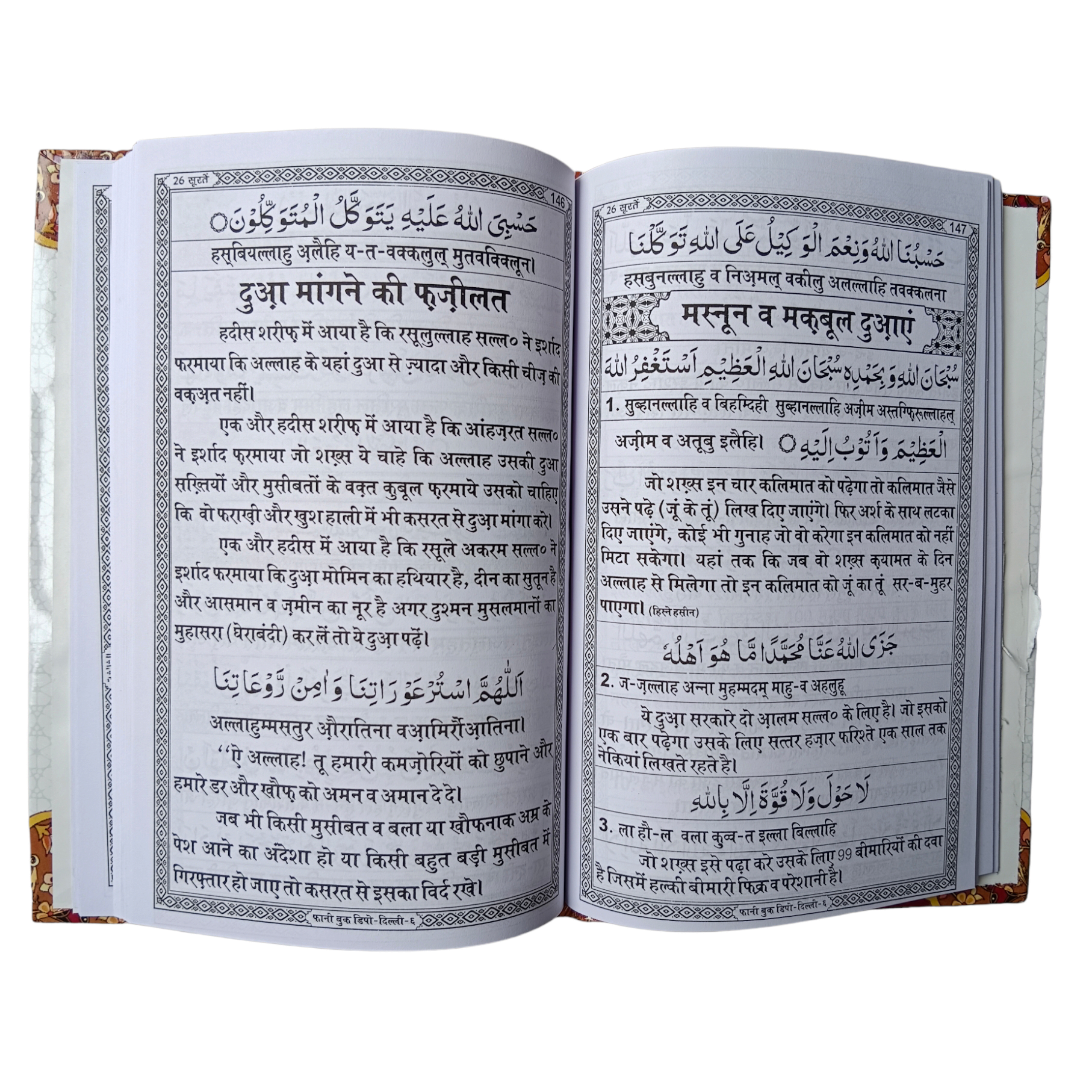 26 सूरतें
146
حَسْبِیَ اللهُ عَلَیْهِ یَتَوَکَّلُ الْمُتَوَکِّلُوْنَ○
हस्बियल्लाहु अ़लैहि य-त-वक्कलुल् मुतवक्किलून।
दुआ़ मांगने की फ़ज़ीलत
हदीस शरीफ़ में आया है कि रसूलुल्लाह सल्ल० ने इर्शाद
फरमाया कि अल्लाह के यहां दुआ से ज़्यादा और किसी चीज़ की
वक़्अ़त नहीं।
एक और हदीस शरीफ़ में आया है कि आंहज़रत सल्ल०
ने इर्शाद फ़रमाया जो शख़्स ये चाहे कि अल्लाह उसकी दुआ
सख़्तियों और मुसीबतों के वक़्त कुबूल फ़रमाये उसको चाहिए
कि वो फराख़ी और खुश हाली में भी कसरत से दुआ़ मांगा करे।
एक और हदीस में आया है कि रसूले अकरम सल्ल० ने
इर्शाद फरमाया कि दुआ़ मोमिन का हथियार है, दीन का सुतून है
और आसमान व ज़मीन का नूर है अगर दुश्मन मुसलमानों का
मुहासरा (घेराबंदी) कर लें तो ये दुआ़ पढ़ें।
اَللّٰهُمَّ اسْتُرْعَوْرَاتِنَا وَاٰمِنْ رَّوْعَاتِنَا
अल्लाहुम्मसतुर औ़रातिना वआमिर्रौआ़तिना।
‘‘ऐ अल्लाह! तू हमारी कमज़ोरियों को छुपाने और
हमारे डर और ख़ौफ़ को अमन व अमान दे दे।
जब भी किसी मुसीबत व बला या खौफनाक अम्र के
पेश आने का अंदेशा हो या किसी बहुत बड़ी मुसीबत में
गिरफ़्तार हो जाए तो कसरत से इसका विर्द रखे।
फानी बुक डिपो-दिल्ली-६
26 सूरतें
147
حَسْبُنَا اللهُ وَنِعْمَ الْوَکِیْلُ عَلَی اللهِ تَوَکَّلْنَا
हसबुनल्लाहु व निअ़मल् वकीलु अलल्लाहि तवक्कलना
मस्नून व मक़्बूल दुआ़एं
سُبْحَانَ اللهِ وَبِحَمْدِهٖ سُبْحَانَ اللهِ الْعَظِیْمِ اَسْتَغْفِرُ اللهَ
1. सुब्हानल्लाहि व बिहम्दिही सुब्हानल्लाहि अज़ीम अस्तग़्फ़िरूल्लाहल्
अज़ीम व अतूबु इलैहि। الْعَظِیْمَ وَاَتُوْبُ اِلَیْهِ○
जो शख़्स इन चार कलिमात को पढ़ेगा तो कलिमात जैसे
उसने पढ़े (जूं के तूं) लिख दिए जाएंगे। फिर अर्श के साथ लटका
दिए जाएंगे, कोई भी गुनाह जो वो करेगा इन कलिमात को नहीं
मिटा सकेगा। यहां तक कि जब वो शख़्स क़यामत के दिन
अल्लाह से मिलेगा तो इन कलिमात को जूं का तूं सर-ब-मुहर
पाएगा। (हिस्ने हसीन)
جَزَی اللهُ عَنَّا مُحَمَّدًا مَّا هُوَ اَهْلُهٗ
2. ज-ज़ल्लाह अन्ना मुहम्मदम् माहु-व अहलुहू
ये दुआ़ सरकारे दो आ़लम सल्ल० के लिए है। जो इसको
एक बार पढ़ेगा उसके लिए सत्तर हज़ार फरिश्ते एक साल तक
नेकियां लिखते रहते है।
لَا حَوْلَ وَلَا قُوَّةَ اِلَّا بِاللهِ
3. ला हौ-ल वला कुव्व-त इल्ला बिल्लाहि
जो शख़्स इसे पढ़ा करे उसके लिए 99 बीमारियों की दवा
है जिसमें हल्की बीमारी फिक्र व परेशानी है।
फानी बुक डिपो-दिल्ली-६